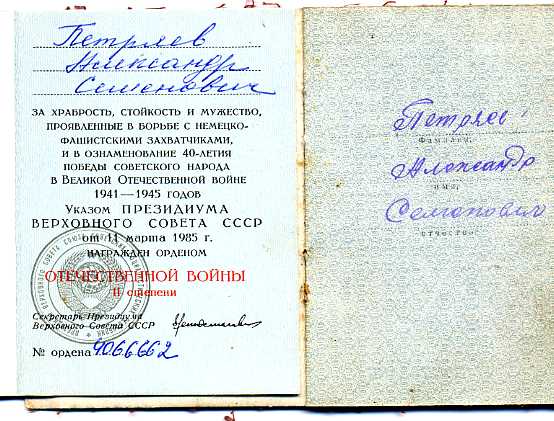 Петряев
Александр
Семенович
ЗА ХРАБРОСТЬ, СТОЙКОСТЬ И МУЖЕСТВО,
ПРОЯВЛЕННЫЕ В БОРЬБЕ С НЕМЕЦКО-
ФАШИСТСКИМИ ЗАХВАТЧИКАМИ,
И В ОЗНАМЕНОВАНИЕ 40-ЛЕТИЯ
ПОБЕДЫ СОВЕТСКОГО НАРОДА
В ВЕЛИКОЙ ОТЕЧЕСТВЕННОЙ ВОЙНЕ
1941—1945 ГОДОВ
УКАЗОМ ПРЕЗИДИУМА
ВЕРХОВНОГО СОВЕТА СССР
от 11 марта 1985 г.
НАГРАЖДЕН ОРДЕНОМ
ОТЕЧЕСТВЕННОЙ ВОЙНЫ
II степени
Секретарь Президиума
Верховного Совета СССР
№ ордена 4066662
Петряев
фамилия,
Александр
имя,
Семенович
отчество